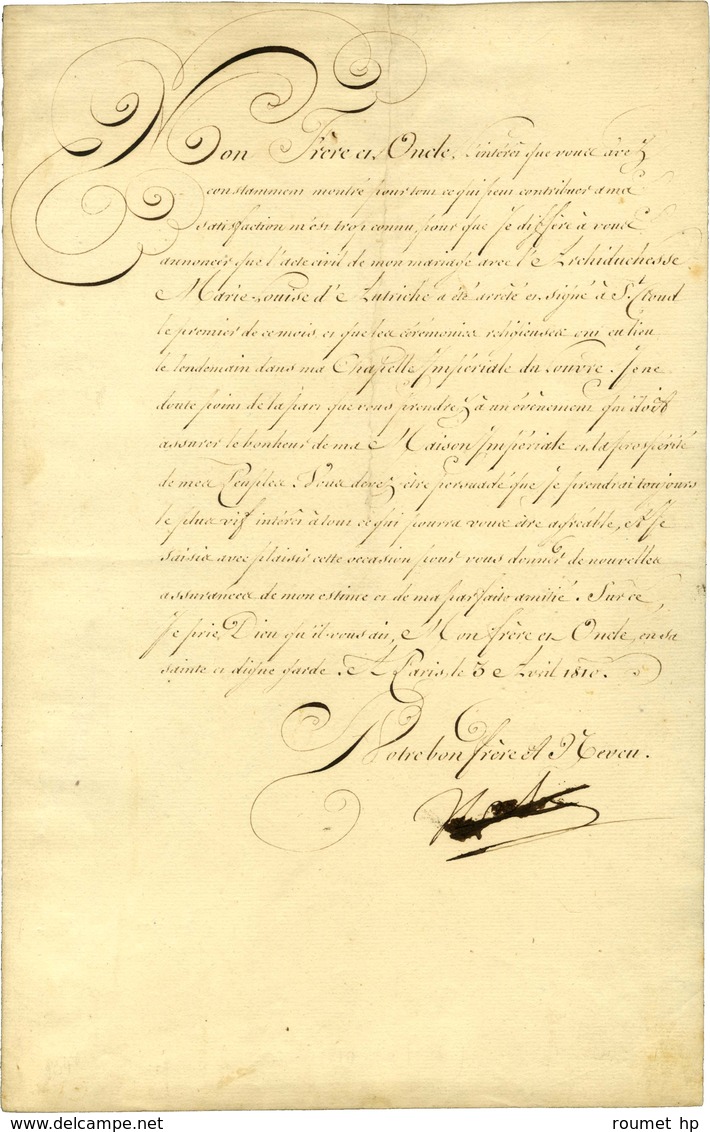 Mon Frère et Oncle, l'intérêt que vous avez
constamment montré pour tout ce qui peut contribuer à ma
satisfaction m'est trop connu, pour que Je diffère à vous
annoncer que l'acte civil de mon mariage avec l'Archiduchesse
Marie-Louise d'Autriche a été arrêté et signé à St. Cloud
le premier de ce mois, et que les cérémonies religieuses ont eu lieu
le lendemain dans ma Chapelle Impériale du Louvre. Je ne
doute point de la part que vous prendrez à un évènement qui doit
assurer le bonheur de ma Maison Impériale et la prospérité
de mes Peuples. Vous devez être persuadé que je prendrai toujours
le plus vif intérêt à tout ce qui pourra vous être agréable, et Je
saisis avec plaisir cette occasion pour vous donner de nouvelles
assurances de mon estime et de ma parfaite amitié. Sur ce
Je prie, Dieu qu'il vous ait, Mon frère et Oncle, en sa
sainte et digne garde. A Paris, le 3 Avril 1810.
Votre bon frère et Neveu.
www.delcampe.net
roumet hp